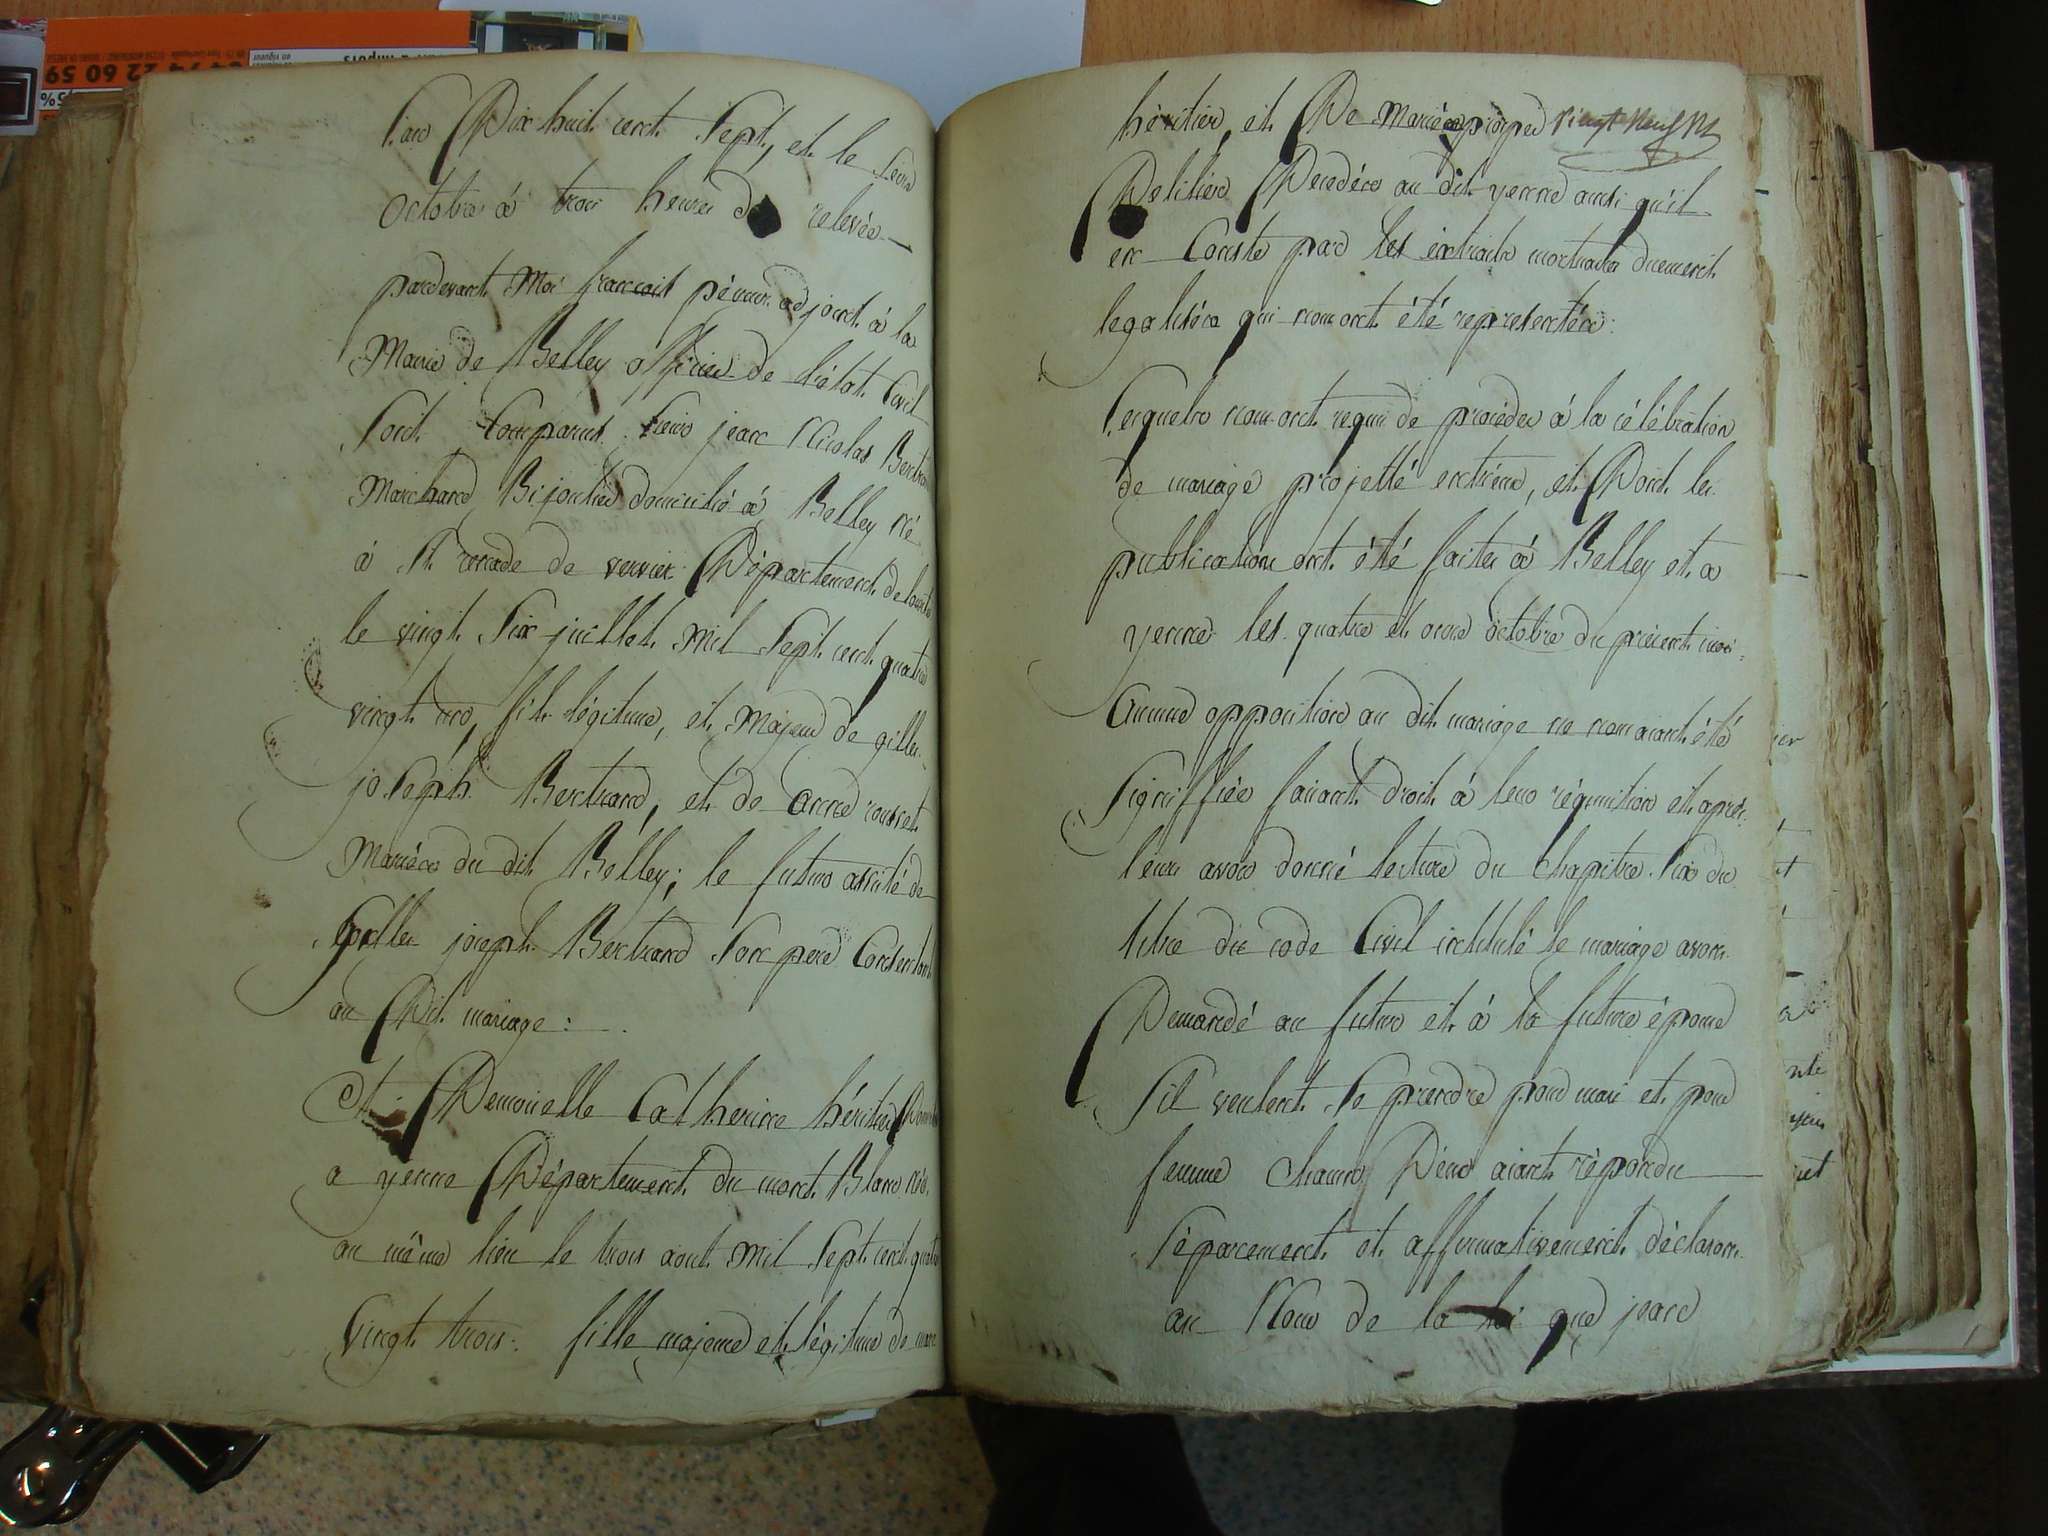 60 59
L'an Dix huit cent Sept, et le Seize
octobre à trois heures de relevée
pardevant Moi françois adjoint à la
Mairie de Belley officier de l'état Civil
Sont Comparus Sieur jean Nicolas Bertrand
Marchand Bijoutier domicilié à Belley né
à St. de Département de
le vingt Six juillet Mil Sept cent quatre
vingt un, fils légitime, et Majeur de gilles
joseph Bertrand, et de anne
Mariés du dit Belley; le futur assisté de
gilles joseph Bertrand Son pere Consentant
au Dit mariage :
Et Demoiselle Catherine héritier
a yenne Département du mont Blanc née
au même lieu le trois aout Mil Sept cent quatre
Vingt trois : fille majeure et légitime de marc
héritier, et De Marie vingt neuf
Décédés au dit yenne ainsi qu'il
en Conste par les extraits mortuaires duement
legalisés qui nous ont été representés :
Lesquels nous ont requis de procéder à la célébration
de mariage projetté entr'eux, et Dont les
publications ont été faites à Belley et a
yenne les quatre et onze octobre du présent mois
Aucune opposition au dit mariage ne nous aiant été
Signiffiée faisant droit à leur réquisition et après
leurs avoir donné lecture du Chapitre Six du
titre du code Civil intitulé le mariage avons
Demandé au futur et à la future épouse
S'il veulent Se prendre pour mari et pour
femme Chacun D'eux aiant répondu
Séparement et affirmativement déclarons
au Nom de la loi que jean